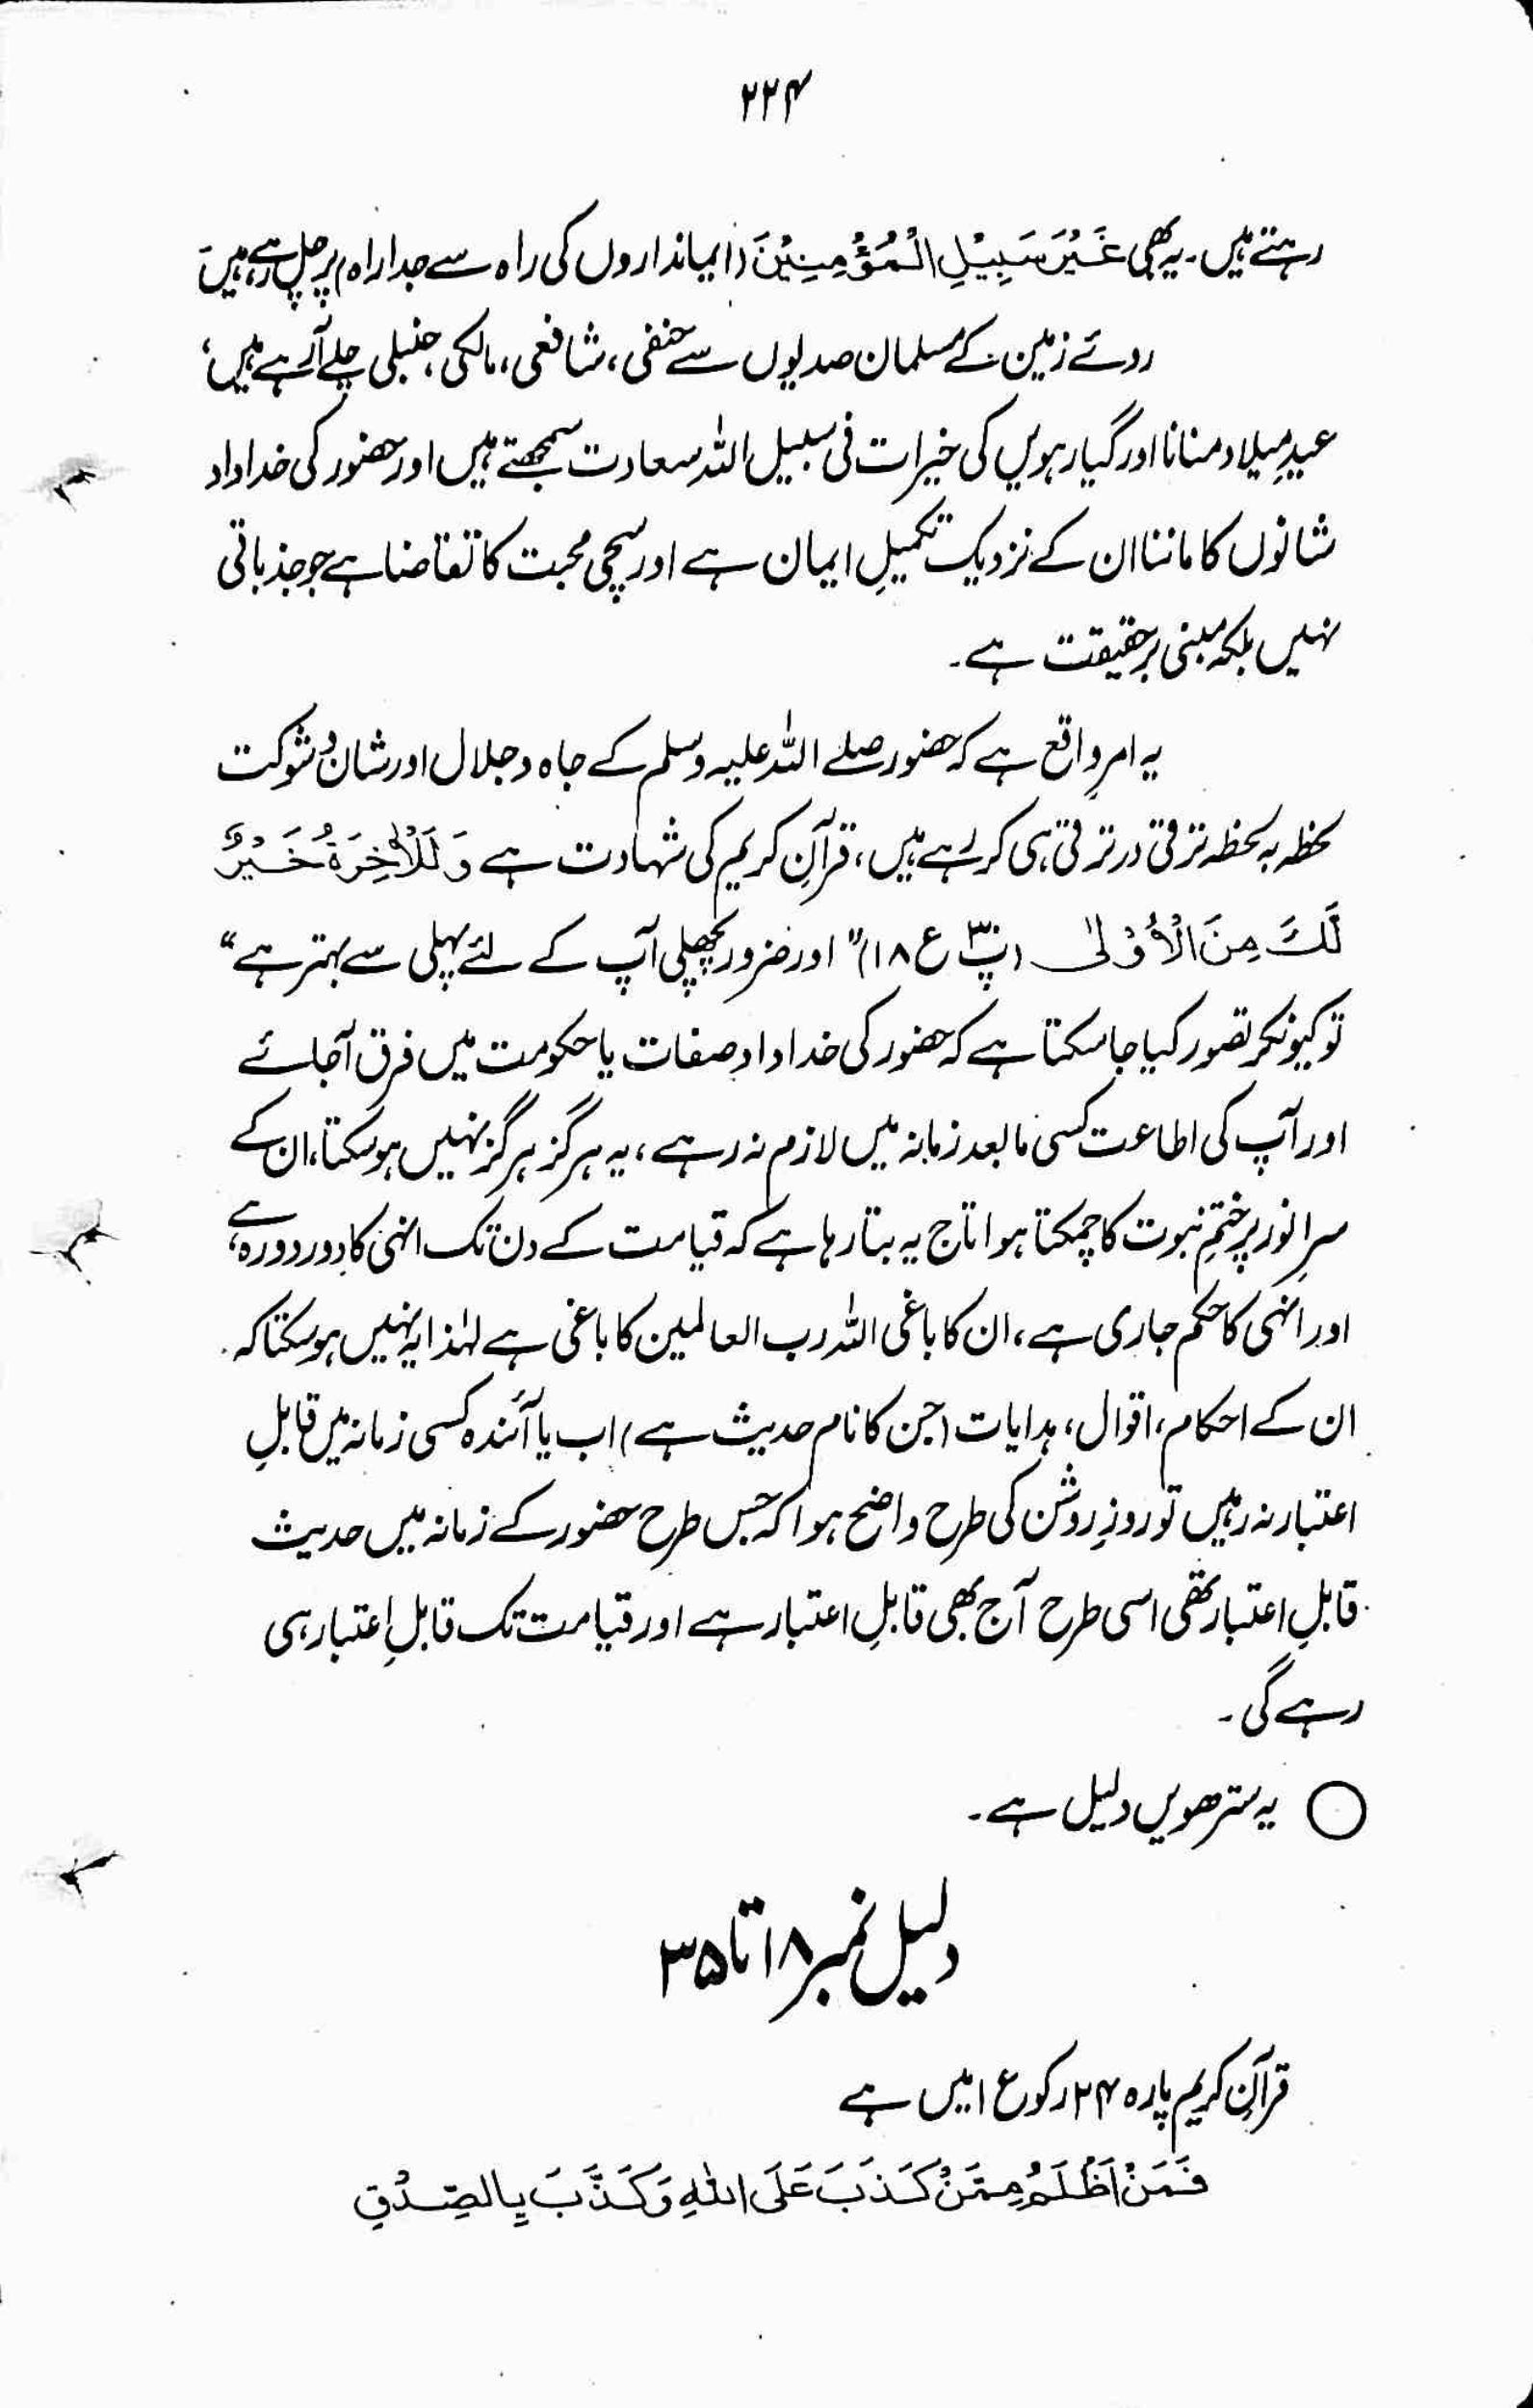 ۲۲۴
رہتے ہیں۔ یہ بھی غَيْرَ سَبِيْلِ الْمُؤْمِنِيْنَ (ایمانداروں کی راہ سے جدا راہ) پر چل رہے ہیں
روئے زمین کے مسلمان صدیوں سے حنفی، شافعی، مالکی، حنبلی چلے آرہے ہیں،
عیدِ میلاد منانا اور گیارہویں کی خیرات فی سبیل اللہ سعادت سمجھتے ہیں اور حضور کی خداداد
شانوں کا ماننا ان کے نزدیک تکمیلِ ایمان ہے اور سچی محبت کا تقاضا ہے جو جذباتی
نہیں بلکہ مبنی بر حقیقت ہے۔
یہ امرِ واقع ہے کہ حضور صلے اللہ علیہ وسلم کے جاہ و جلال اور شان و شوکت
لحظہ بہ لحظہ ترقی در ترقی ہی کر رہے ہیں، قرآنِ کریم کی شہادت ہے وَلَلْاٰخِرَةُ خَيْرٌ
لَّكَ مِنَ الْاُوْلٰى (پ۳۰ ع ۱۸) "اور ضرور پچھلی آپ کے لئے پہلی سے بہتر ہے"
تو کیونکر تصور کیا جا سکتا ہے کہ حضور کی خداداد صفات یا حکومت میں فرق آجائے
اور آپ کی اطاعت کسی مابعد زمانہ میں لازم نہ رہے، یہ ہرگز ہرگز نہیں ہوسکتا، ان کے
سرِ انور پر ختمِ نبوت کا چمکتا ہوا تاج یہ بتا رہا ہے کہ قیامت کے دن تک انہی کا دور دورہ ہے،
اور انہی کا حکم جاری ہے، ان کا باغی اللہ رب العالمین کا باغی ہے لہٰذا یہ نہیں ہوسکتا کہ
ان کے احکام، اقوال، ہدایات (جن کا نام حدیث ہے) اب یا آئندہ کسی زمانہ میں قابلِ
اعتبار نہ رہیں تو روزِ روشن کی طرح واضح ہوا کہ جس طرح حضور کے زمانہ میں حدیث
قابلِ اعتبار تھی اسی طرح آج بھی قابلِ اعتبار ہے اور قیامت تک قابلِ اعتبار ہی
رہے گی۔
○ یہ سترھویں دلیل ہے۔
دلیل نمبر ۱۸ تا ۳۵
قرآنِ کریم پارہ ۲۴ رکوع ۱ میں ہے
فَمَنْ اَظْلَمُ مِمَّنْ كَذَبَ عَلَى اللهِ وَكَذَّبَ بِالصِّدْقِ